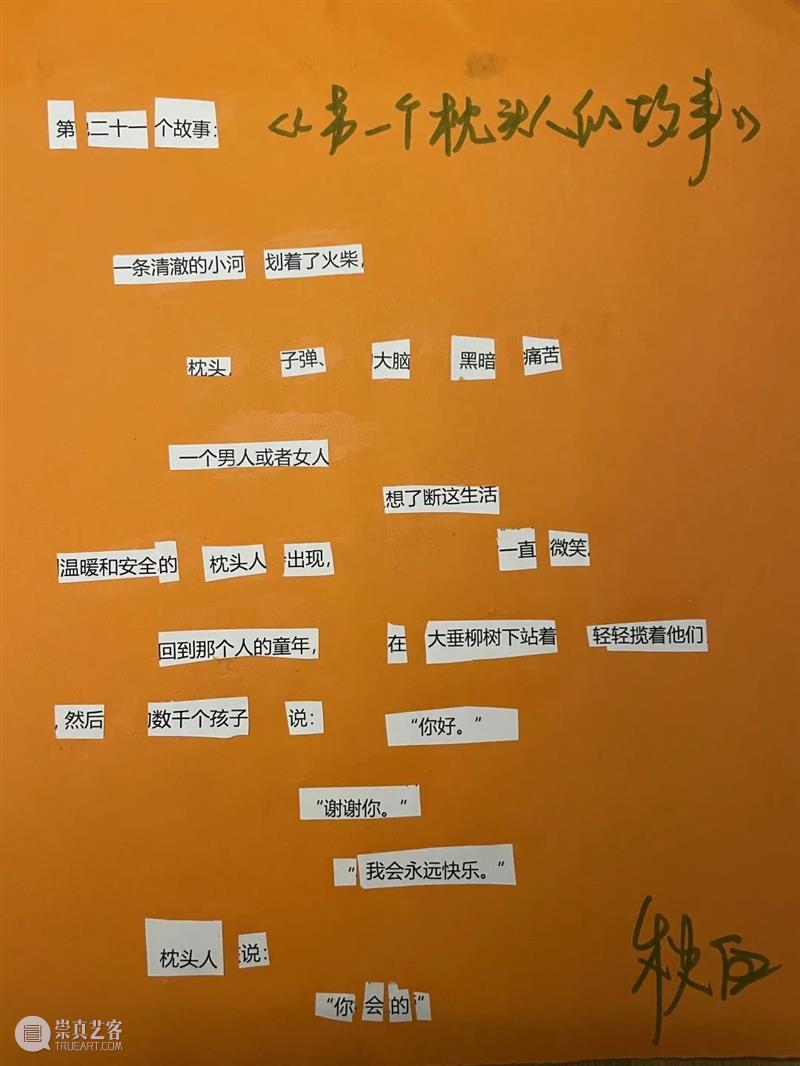 第二十一个故事: 《一个枕头人的故事》
一条清澈的小河 划着了火柴,
枕头, 子弹、 大脑 黑暗 痛苦
一个男人或者女人
想了断这生活
温暖和安全的 枕头人 出现, 一直 微笑,
回到那个人的童年, 在 大垂柳树下站着 轻轻揽着他们
,然后 数千个孩子 说: “你好。“
“谢谢你。“
“ 我会永远快乐。“
枕头人 说:
“你 会 的 “
崇真艺客
TRUEART.COM